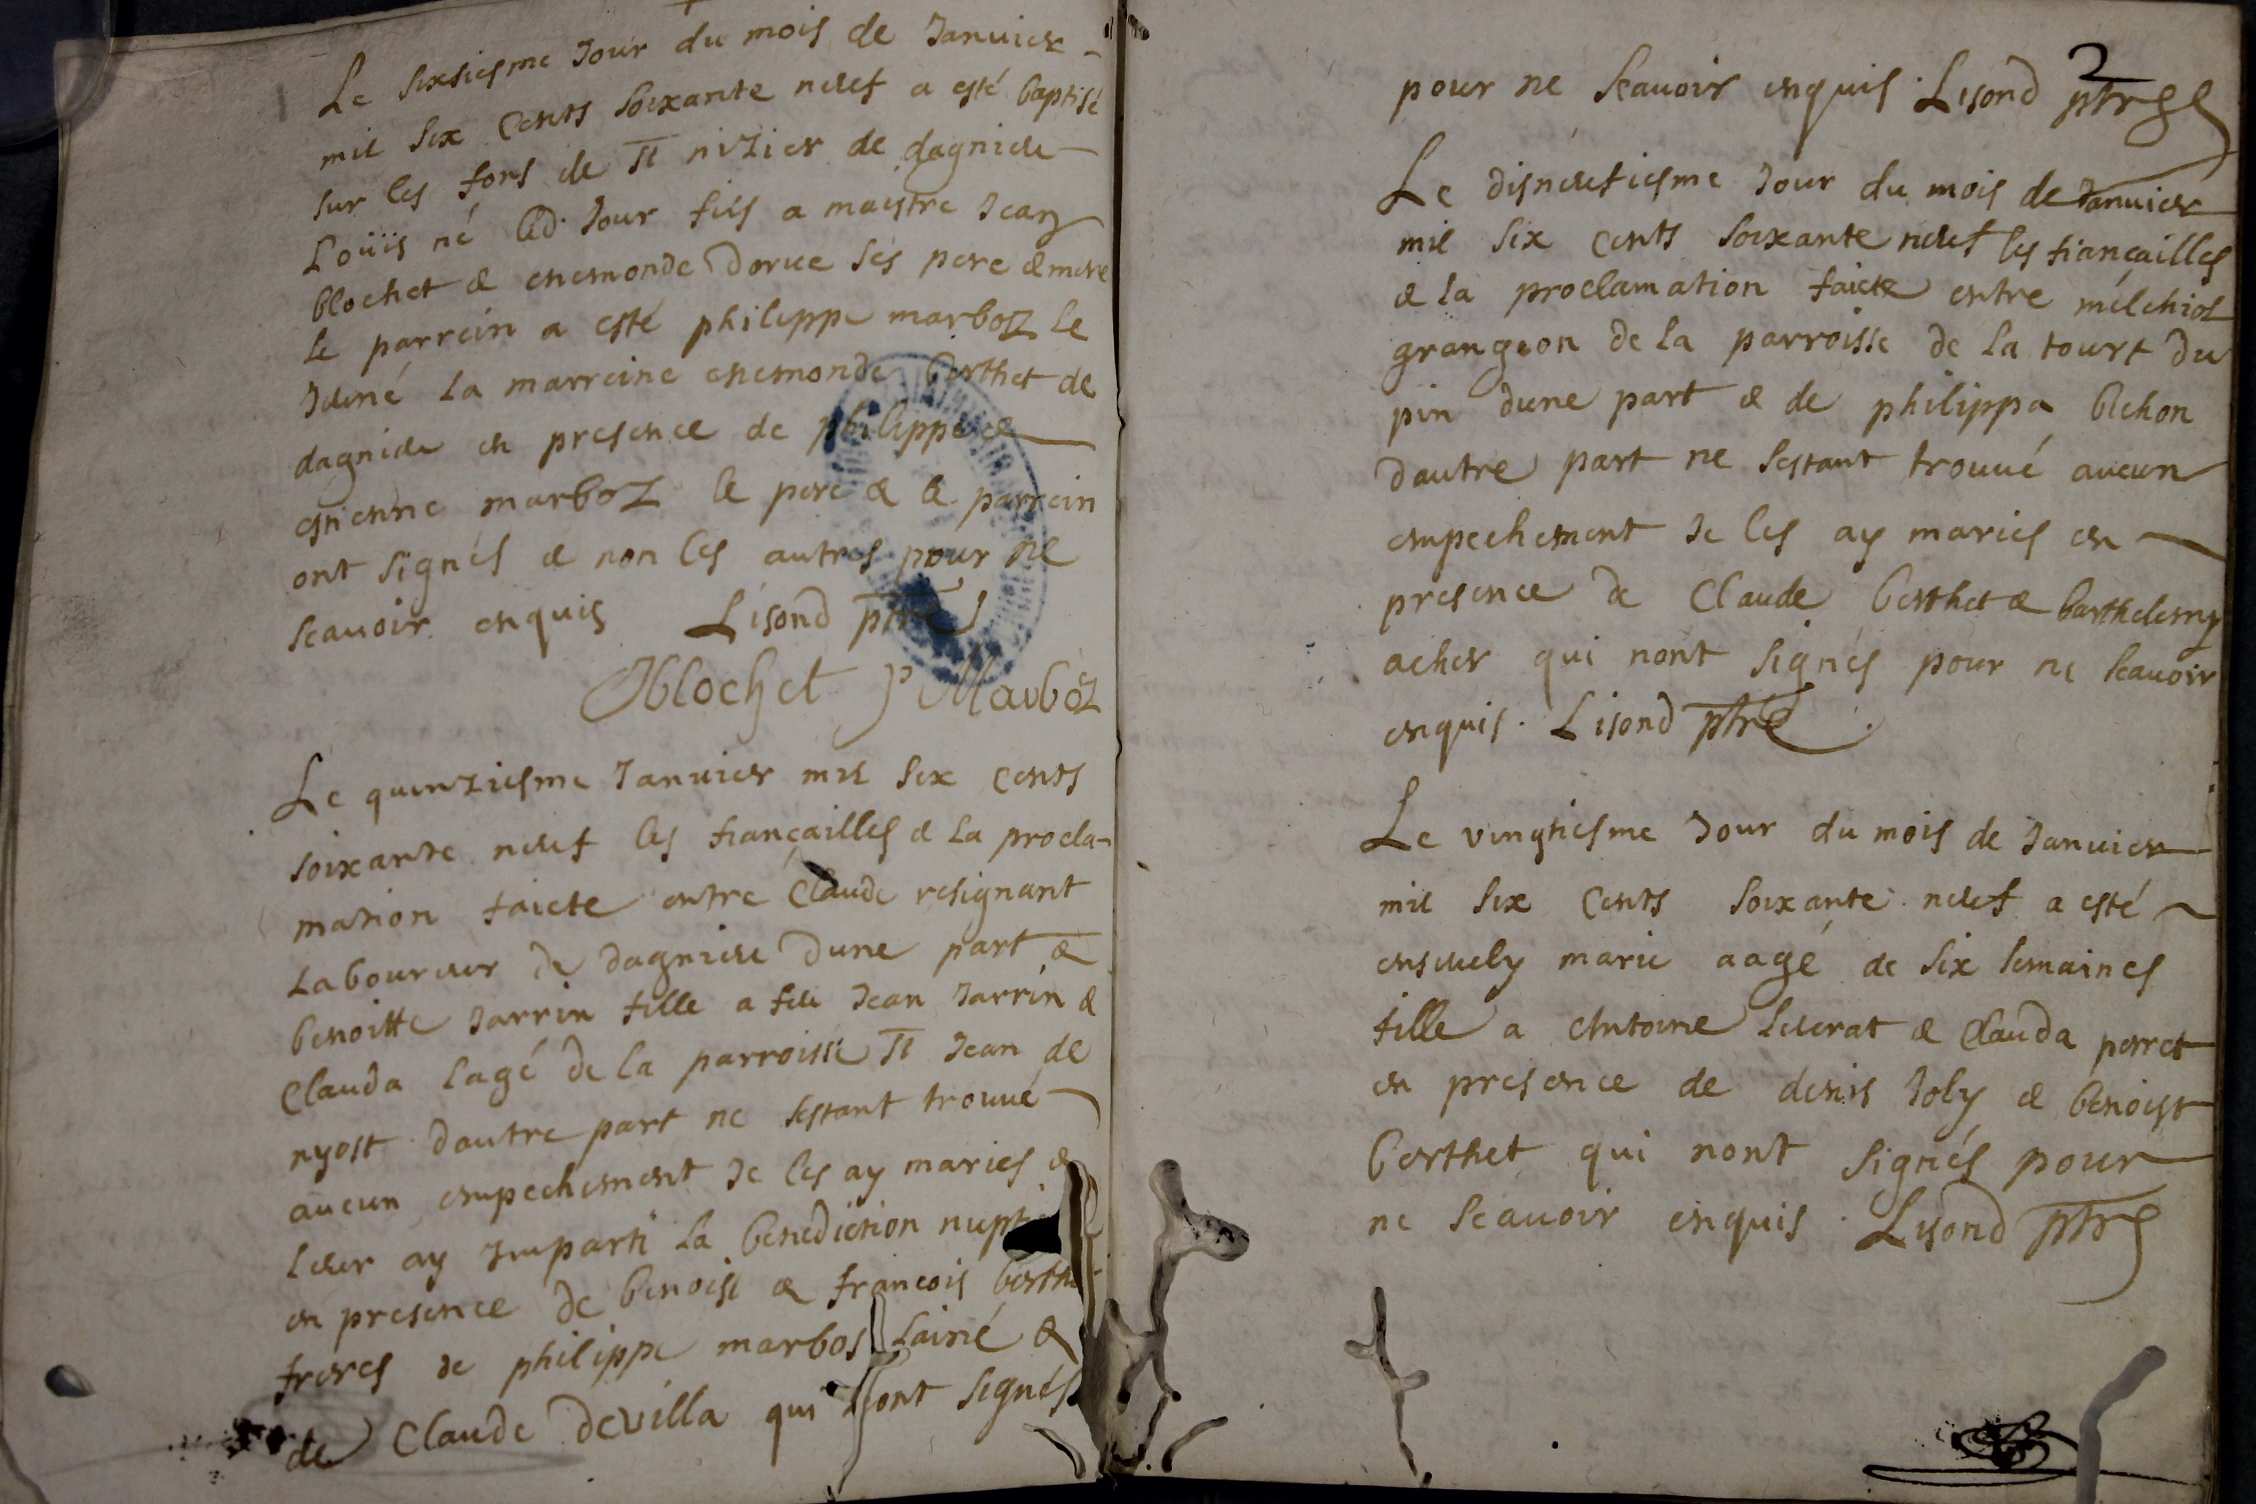 Le sixsiesme Jour du mois de Januier
mil six cents soixante neuf a esté baptisé
sur les fons de st nizier de dagnieu
Loüis né led. Jour fils a maistre Jean
blochet & enemonde Dorue ses pere & mere
le parrein a esté philippe marboz le
Jeuné la marreine enemonde berthet de
dagnieu en presence de philippe &
estienne marboz le pere & le parrein
ont signés & non les autres pour ne
scauoir enquis Lisond ptre
Jblochet P Marboz
Le quinziesme Januier mil six cents
soixante neuf les fiançailles & la procla-
mation faicte entre Claude resignant
Laboureur de dagnieu dune part &
benoitte Jarrin fille a feu Jean Jarrin &
Clauda lagé de la parroisse st Jean de
nyost dautre part ne sestant trouué
aucun empechement Je les ay mariés &
leur ay Imparti la benediction
en presence de benoist & francois
freres de philippe marbos lainé &
de Claude devilla qui nont signés
2
pour ne scauoir enquis. Lisond ptre
Le disneufiesme Jour du mois de Januier
mil six cents soixante neuf les fiançailles
& la proclamation faicte entre melchiol
grangeon de la parroisse de la tourt du
pin dune part & de philippa bichon
dautre part ne sestant trouué aucun
empechement Je les ay mariés en
presence de Claude berthet & barthelemy
acher qui nont signés pour ne scauoir
enquis. Lisond ptre.
Le vingtiesme Jour du mois de Januier
mil six cents soixante neuf a esté
enseuely marie aagé de six semaines
fille a Antoine leuerat & Clauda perret
en presence de denis Joly & benoist
berthet qui nont signés pour
ne scauoir enquis. Lisond ptre